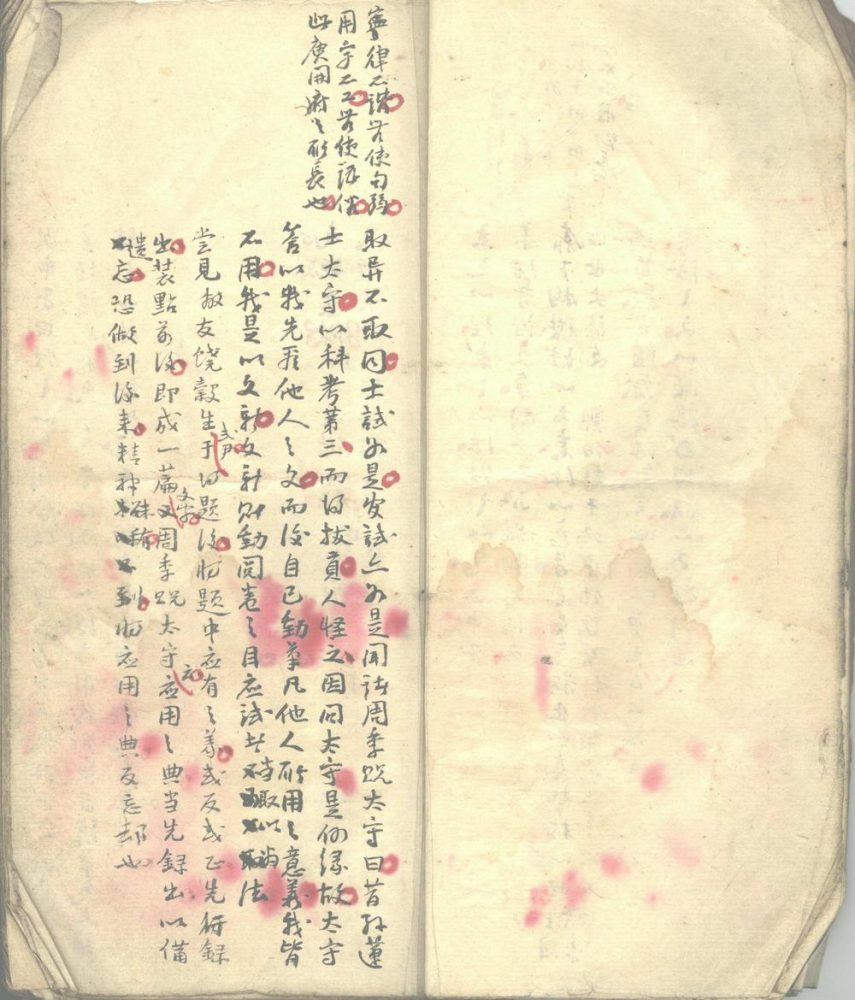 寧律不諧使句弱
用字不工使語俗
此庾開府之所長也
取異不取同士試如是試亦如是聞諸周季貺太守曰昔孫蓮
士太守以科考第三而得拔貢人怪之因問太守是何緣故太守
答以我先他人之文而後自己動筆凡他人所用之意義我皆
不用我是以文新文新則動閱卷之目應試者當取以為法
嘗見故友饒穀生得題後將題中應有之義或反或正先行錄
出裝點前後即成一篇文字周季貺太守亦應用之典當先錄出以備
遺忘恐做到後來精神不到將應用之典反忘却也